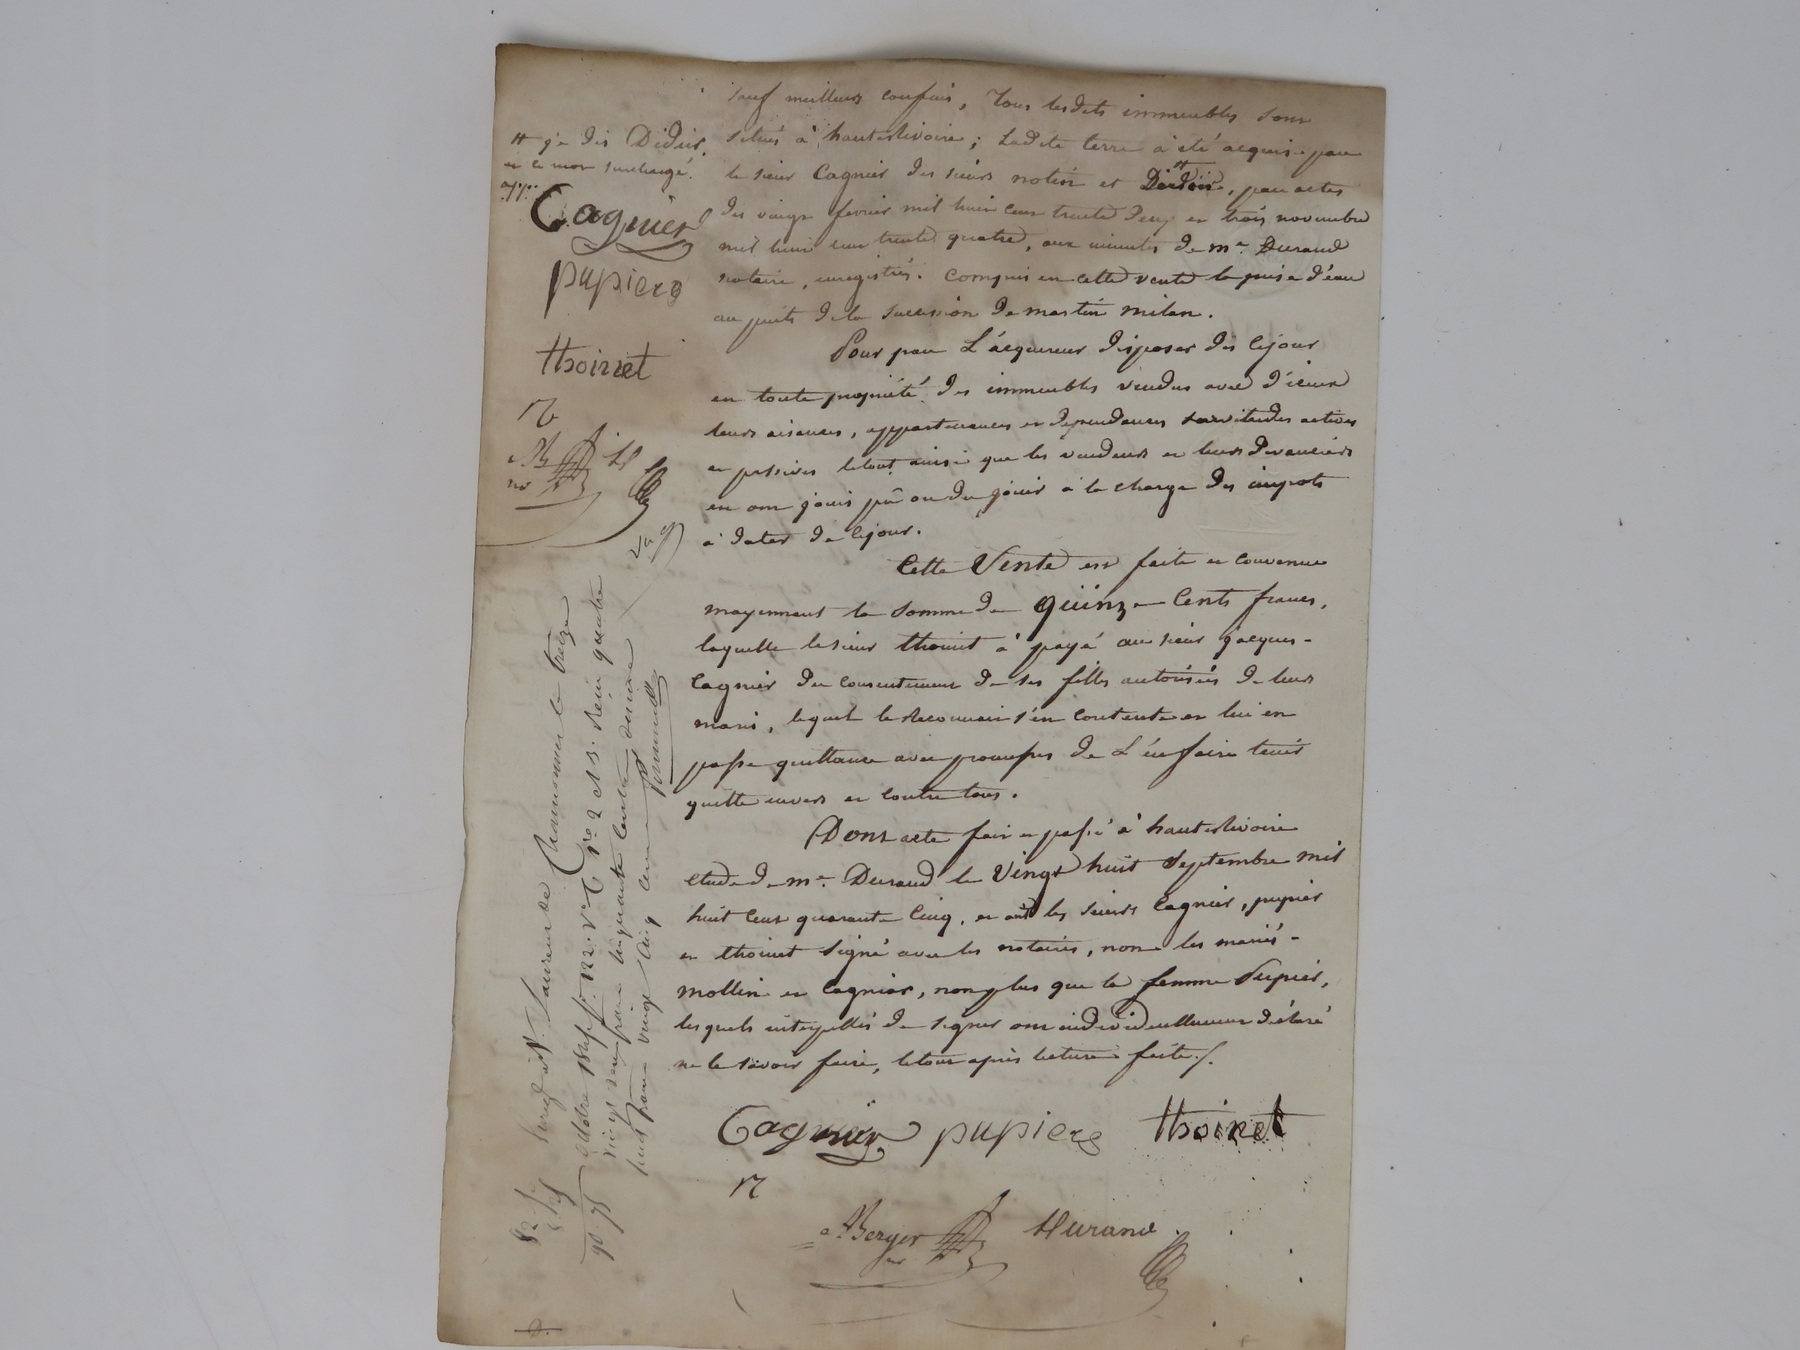 sauf meilleurs confins, Tous lesdits immeubles sont
situés à hauterivoire; Ladite terre à été acquise par
le sieur Cagnier des sieurs notin et Didier, par actes
des vingt fevrier mil huit cent trente deux et trois novembre
mil huit cent trente quatre, aux minutes de me. Durand
notaire, enregistrés. Compris en cette vente la prise d'eau
au puits de la succession de martin milan.
Pour par L'acquereur disposer dès cejour
en toute propriété des immeubles vendus avec d'iceux
leurs aisances, appartenances et dependances servitudes actives
et passives letout ainsi que les vendeurs et leurs devanciers
en ont joui pû ou du jouir à la charge des impots
à dater de cejour.
Cette Vente est faite et convenue
moyennant la somme de quinze Cents francs,
laquelle lesieur thoinet à payé au sieur jacques-
Cagnier du consentement de ses filles autorisées de leurs
maris, lequel le Reconnait s'en contente et lui en
passe quittance avec promesses de L'en faire tenir
quitte envers et contre tous.
Dont acte fait et passé à hauterivoire
etude de me. Durand le Vingt huit Septembre mil
huit cent quarante Cinq, et ont les sieurs Cagnier, pupier
et thoinet signé avec les notaires, non les mariés-
mollin et Cagnier, nonplus que la femme Pupier,
lesquels interpellés de signer ont individuellement déclaré
ne le savoir faire, letout après lecture faite./.
Cagnier pupiere thoinet
ABerger Durand
# je dis Didier,
et ce mot surchargé.
app.
Cagnier
pupiere
thoinet
Enregt à St. Laurent de Chamousset le treize
octobre 1845 fo. 122. Vo. Cse 2 et 3. Reçu quatre
vingt deux francs cinquante centimes decime
huit francs vingt cinq centimes
82
90 75